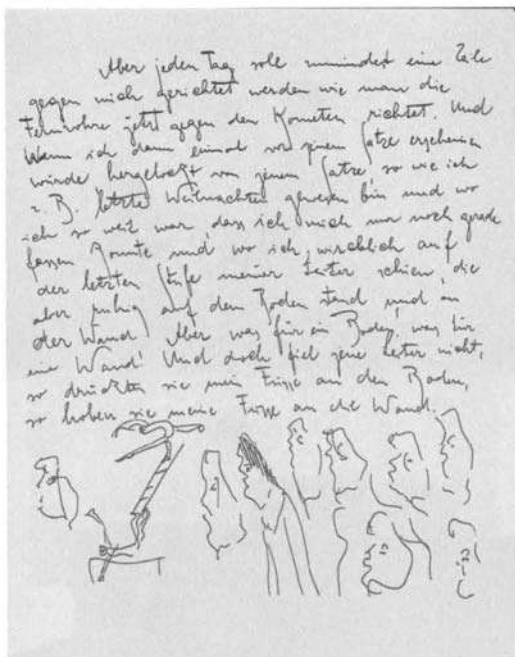 Aber jeden Tag soll mindest eine Zeile
gegen mich gerichtet werden wie man die
Fernrohre jetzt gegen den Kometen richtet. Und
Wenn ich dann einmal vor jenem Satze erscheinen
würde hergelockt von jenem Satze, so wie ich
z. B. letzte Weihnachten gewesen bin und wo
ich so weit war, dass ich mich nur noch gerade
fassen konnte und wo ich wirklich auf
der letzten Stufe meiner Leiter schien, die
aber ruhig auf dem Boden stand und an
der Wand. Aber was für ein Boden, was für
eine Wand! Und doch fiel jene Leiter nicht,
so drückten sie mein Füsse an den Boden,
so hoben sie meine Füsse an die Wand.